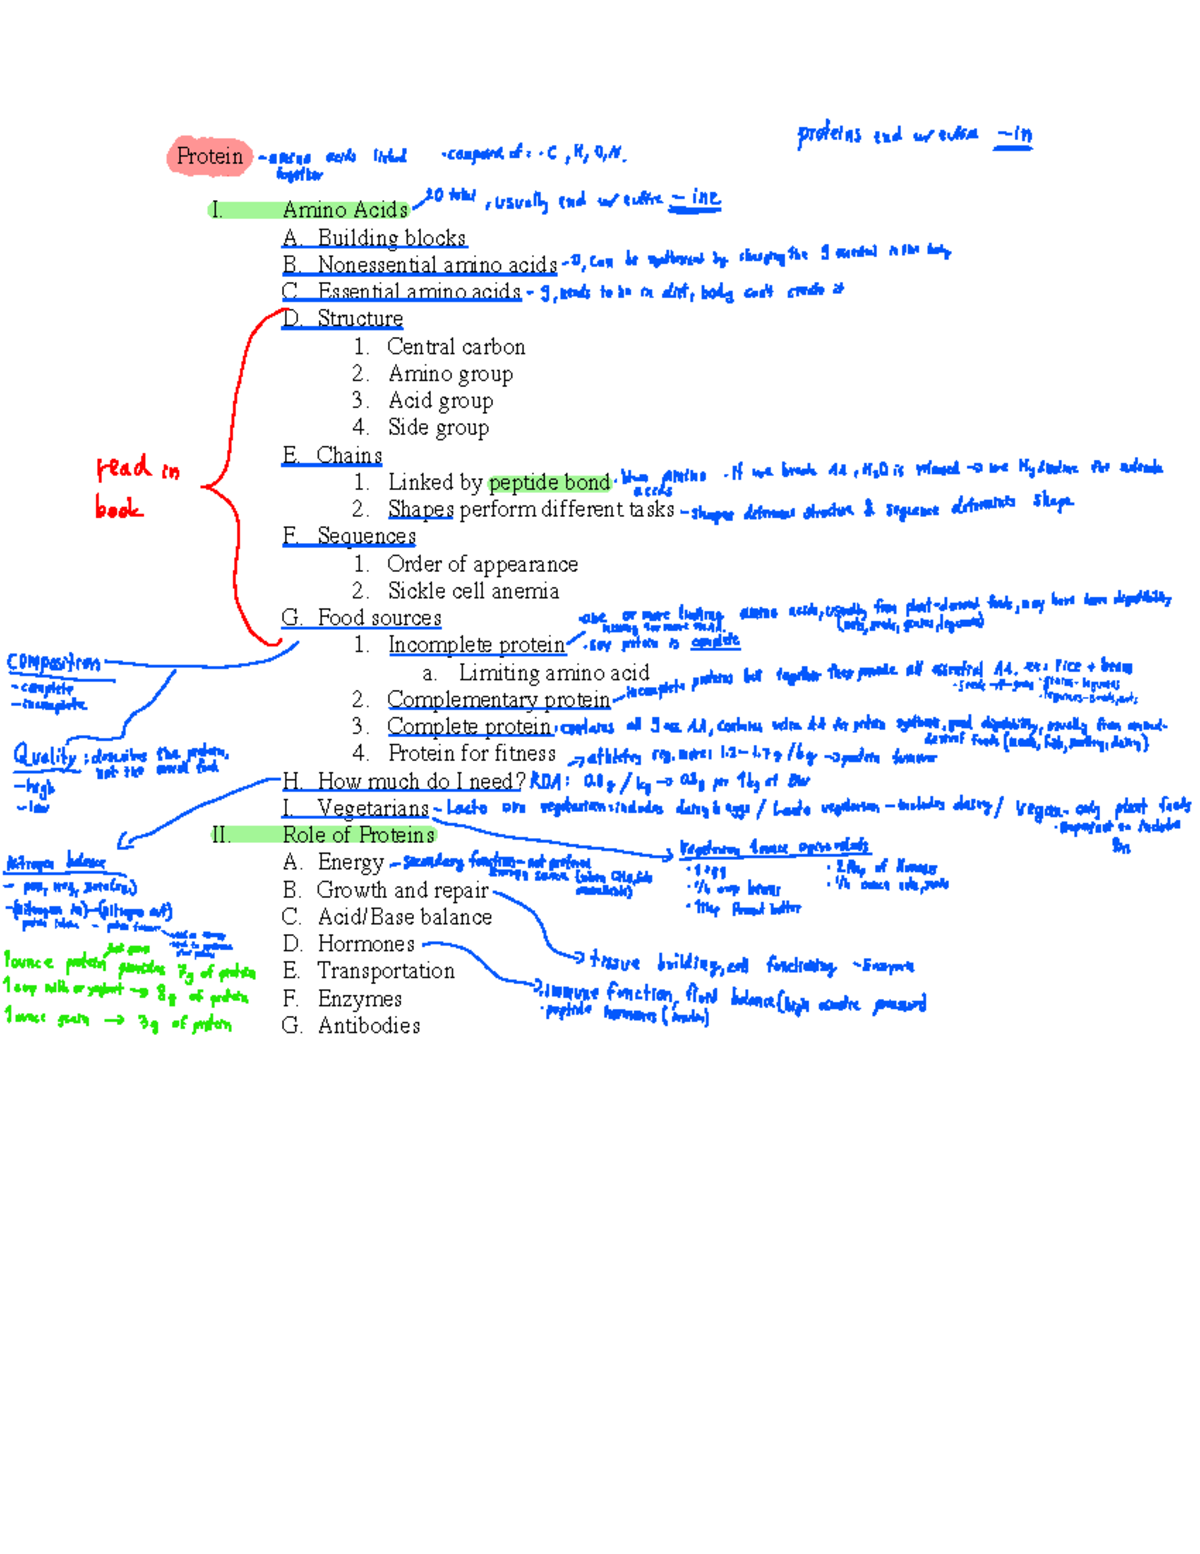 proteins end w/ -in
Protein - amino acids linked together · composed of: · C, H, O, N.
I. Amino Acids 20 total, usually end w/ -ine
A. Building blocks
B. Nonessential amino acids - 11, can be by changing the 9 essential in the body
C. Essential amino acids - 9, needs to be in diet, body can't create it
D. Structure
1. Central carbon
2. Amino group
3. Acid group
4. Side group
read in
book
E. Chains
1. Linked by peptide bond · btwn amino acids - If we break AA, H2O is released → use
2. Shapes perform different tasks - shapes determine structure & sequence determines shape
F. Sequences
1. Order of appearance
2. Sickle cell anemia
G. Food sources
- one or more limiting amino acids, usually from plant-derived foods, may have lower digestibility
(nuts, seeds, grains, legumes)
1. Incomplete protein
- soy protein is complete
a. Limiting amino acid
2. Complementary protein - incomplete proteins but together they provide all essential AA. ex: rice + beans
3. Complete protein · contains all 9 ess. AA, good digestibility, usually from animal-
derived foods (meats, fish, poultry, dairy)
4. Protein for fitness → athletes req. more: 1.2-1.7g/kg → protein turnover
composition
- complete
- incomplete
Quality: describes the protein,
not the overall food
- high
- low
H. How much do I need? RDA: 0.8g/kg → 0.8g per 1kg of BW
I. Vegetarians - Lacto ovo vegetarian: includes dairy & eggs / Lacto vegetarian - includes dairy / Vegan - only plant foods
· important to include
Vegetarian 1 ounce equivalents
· 1 egg
· 1/4 cup beans
· 1 tbsp Peanut butter
· 2 tbsp of Hummus
· 1/2 ounce nuts, seeds
II. Role of Proteins
A. Energy - secondary function - not preferred
energy source (when available)
B. Growth and repair
C. Acid/Base balance
D. Hormones
E. Transportation
F. Enzymes
G. Antibodies
→ tissue building, cell functioning - Enzymes
→ · immune function, fluid balance (high pressure)
· peptide hormones (insulin)
Nitrogen balance
- pos, neg, zero
- (nitrogen in) - (nitrogen out)
1 ounce protein provides 7g of protein
1 cup milk or yogurt → 8g of protein
1 ounce grain → 3g of protein